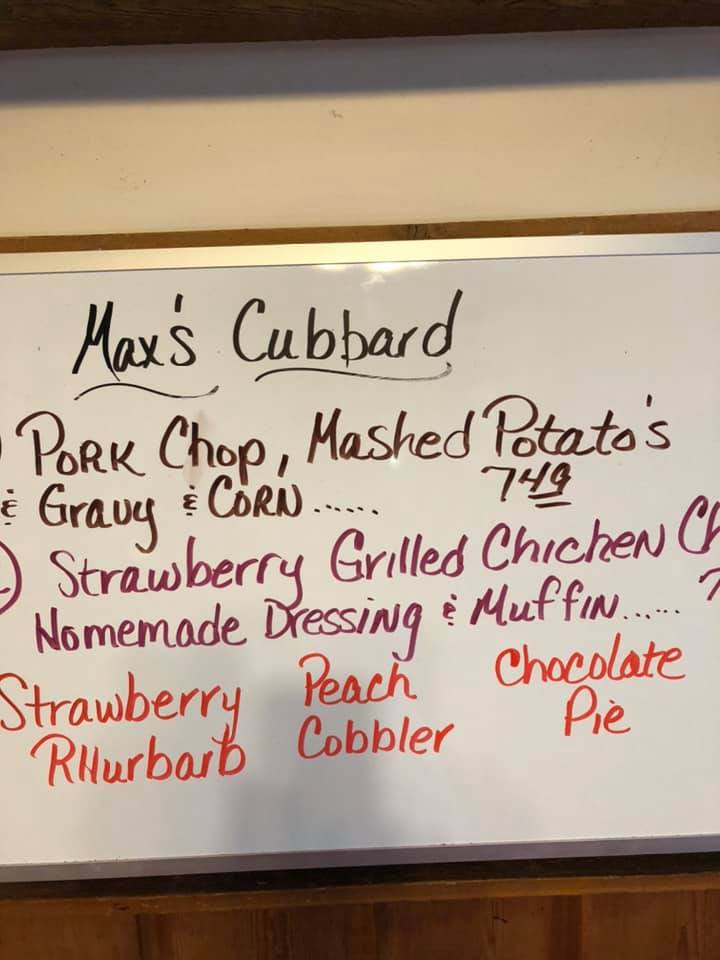 Max's Cubbard
PORK Chop, Mashed Potato's
& Gravy & CORN...... 749
Strawberry Grilled Chicken
Homemade Dressing & Muffin......
Strawberry Peach Chocolate
RHurbarb Cobbler Pie